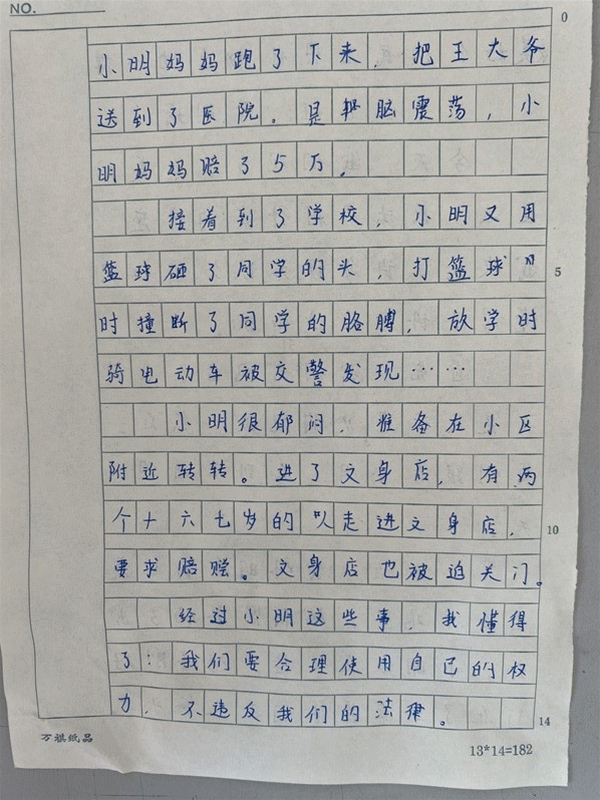 NO.
0
小明妈妈跑了下来，把王大爷
送到了医院。是轻脑震荡，小
明妈妈赔了5万，
接着到了学校，小明又用
篮球砸了同学的头，打篮球
时撞断了同学的胳膊，放学时
5
骑电动车被交警发现……
小明很郁闷，准备在小区
附近转转。进了文身店，有两
个十六七岁的走进文身店，
10
要求赔赏。文身店也被迫关门。
经过小明这些事，我懂得
了：我们要合理使用自己的权
力，不违反我们的法律。
14
万祺纸品
13*14=182